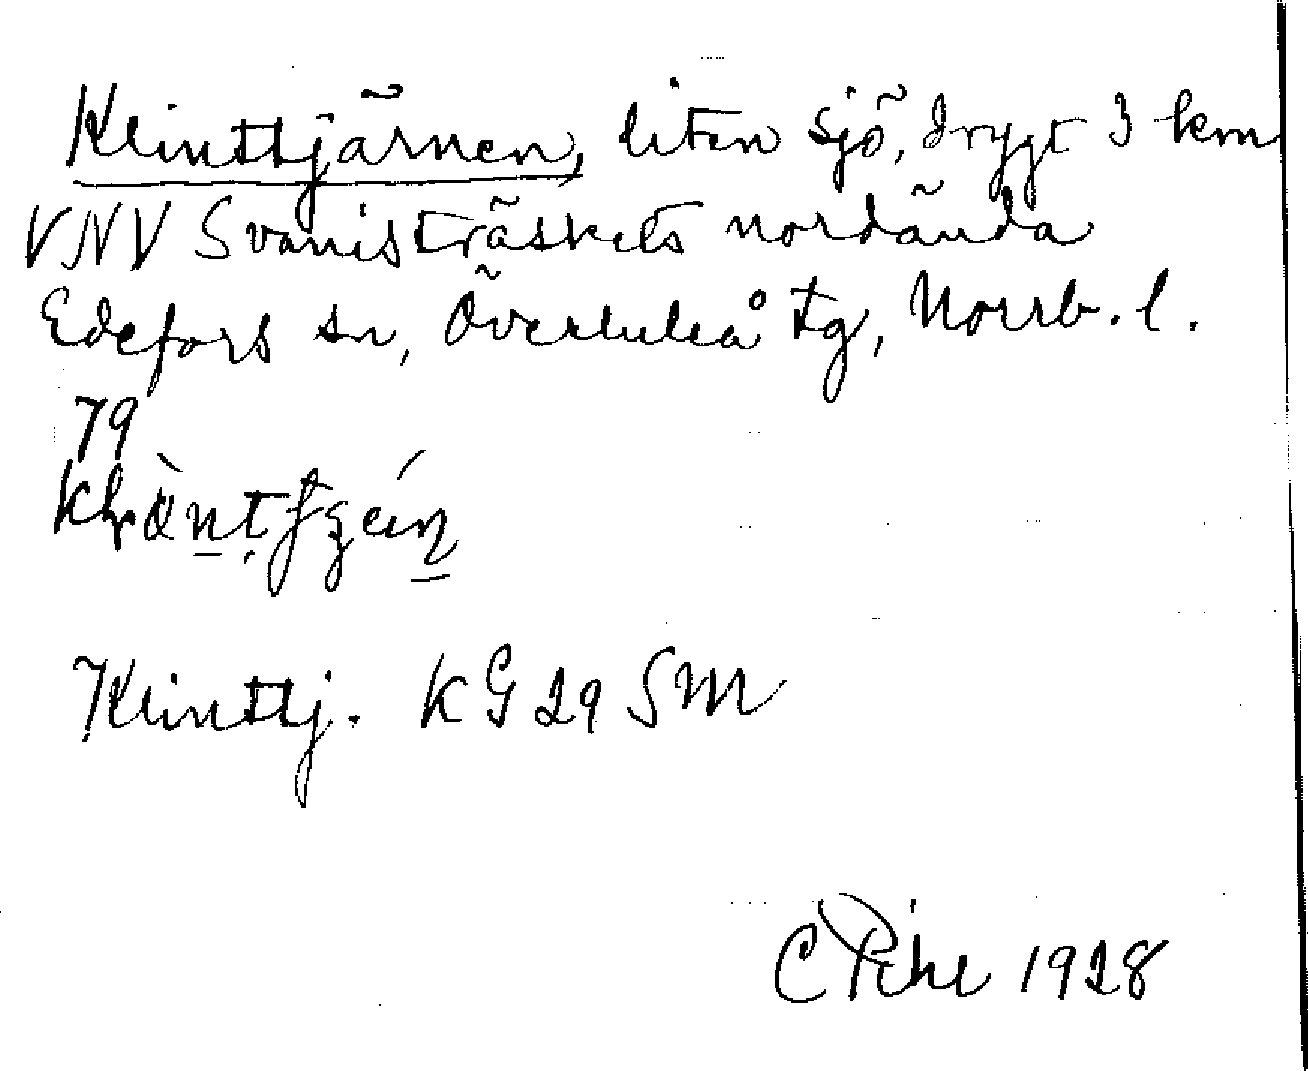 Klinttjärnen, liten sjö, drygt 3 km
VNV Svanisträskets nordända
Edefors sn, Överluleå tg, Norrb. l.
79
Klinttj. KG 29 SM
C Pihl 1928